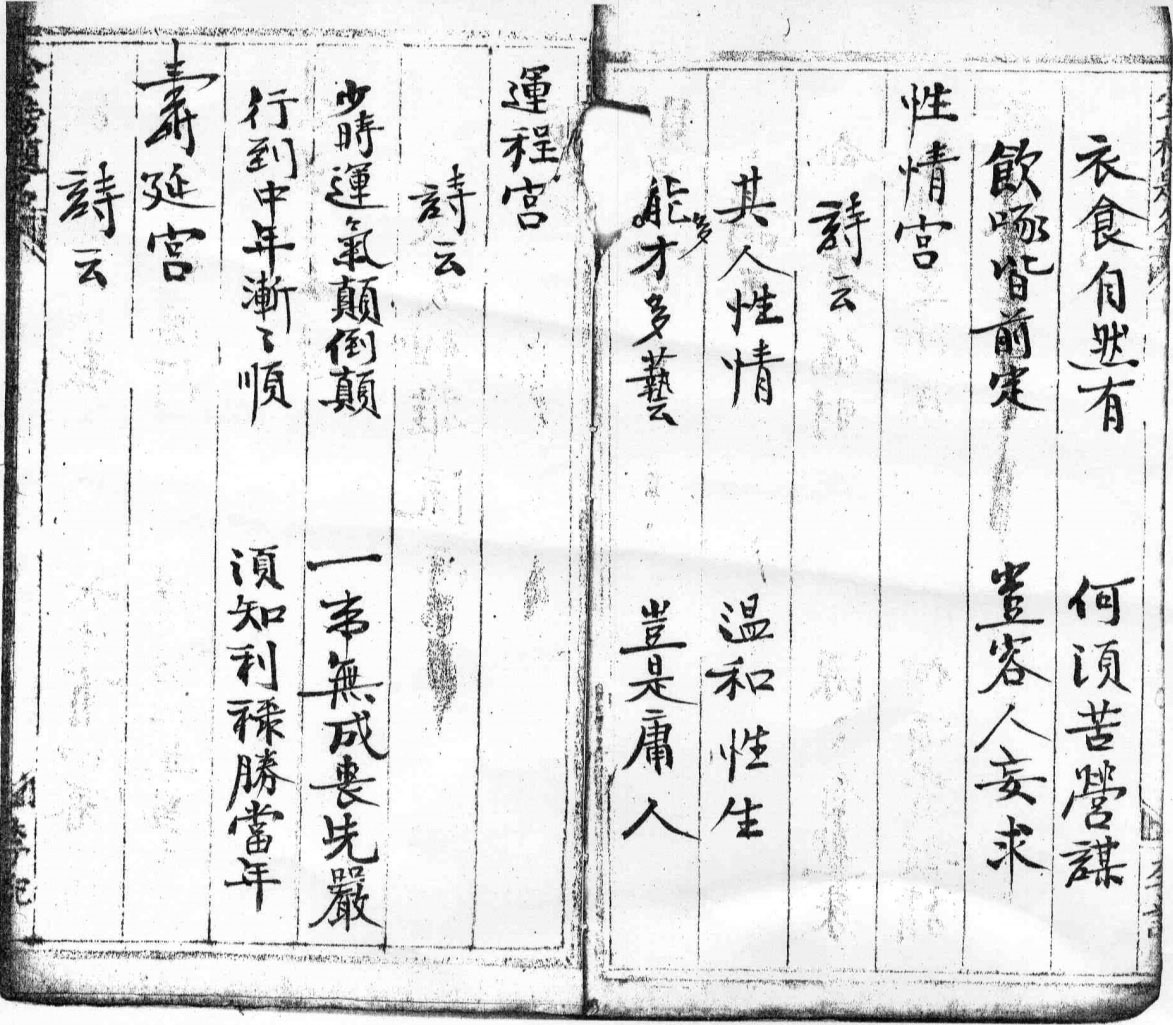 衣食自然有 何須苦營謀
飲啄皆前定 豈容人妄求
性情宮
詩云
其人性情 温和性生
能多才多藝 豈是庸人
運程宮
詩云
少時運氣顛倒顛 一事無成喪先嚴
行到中年漸〻順 須知利祿勝當年
壽延宮
詩云